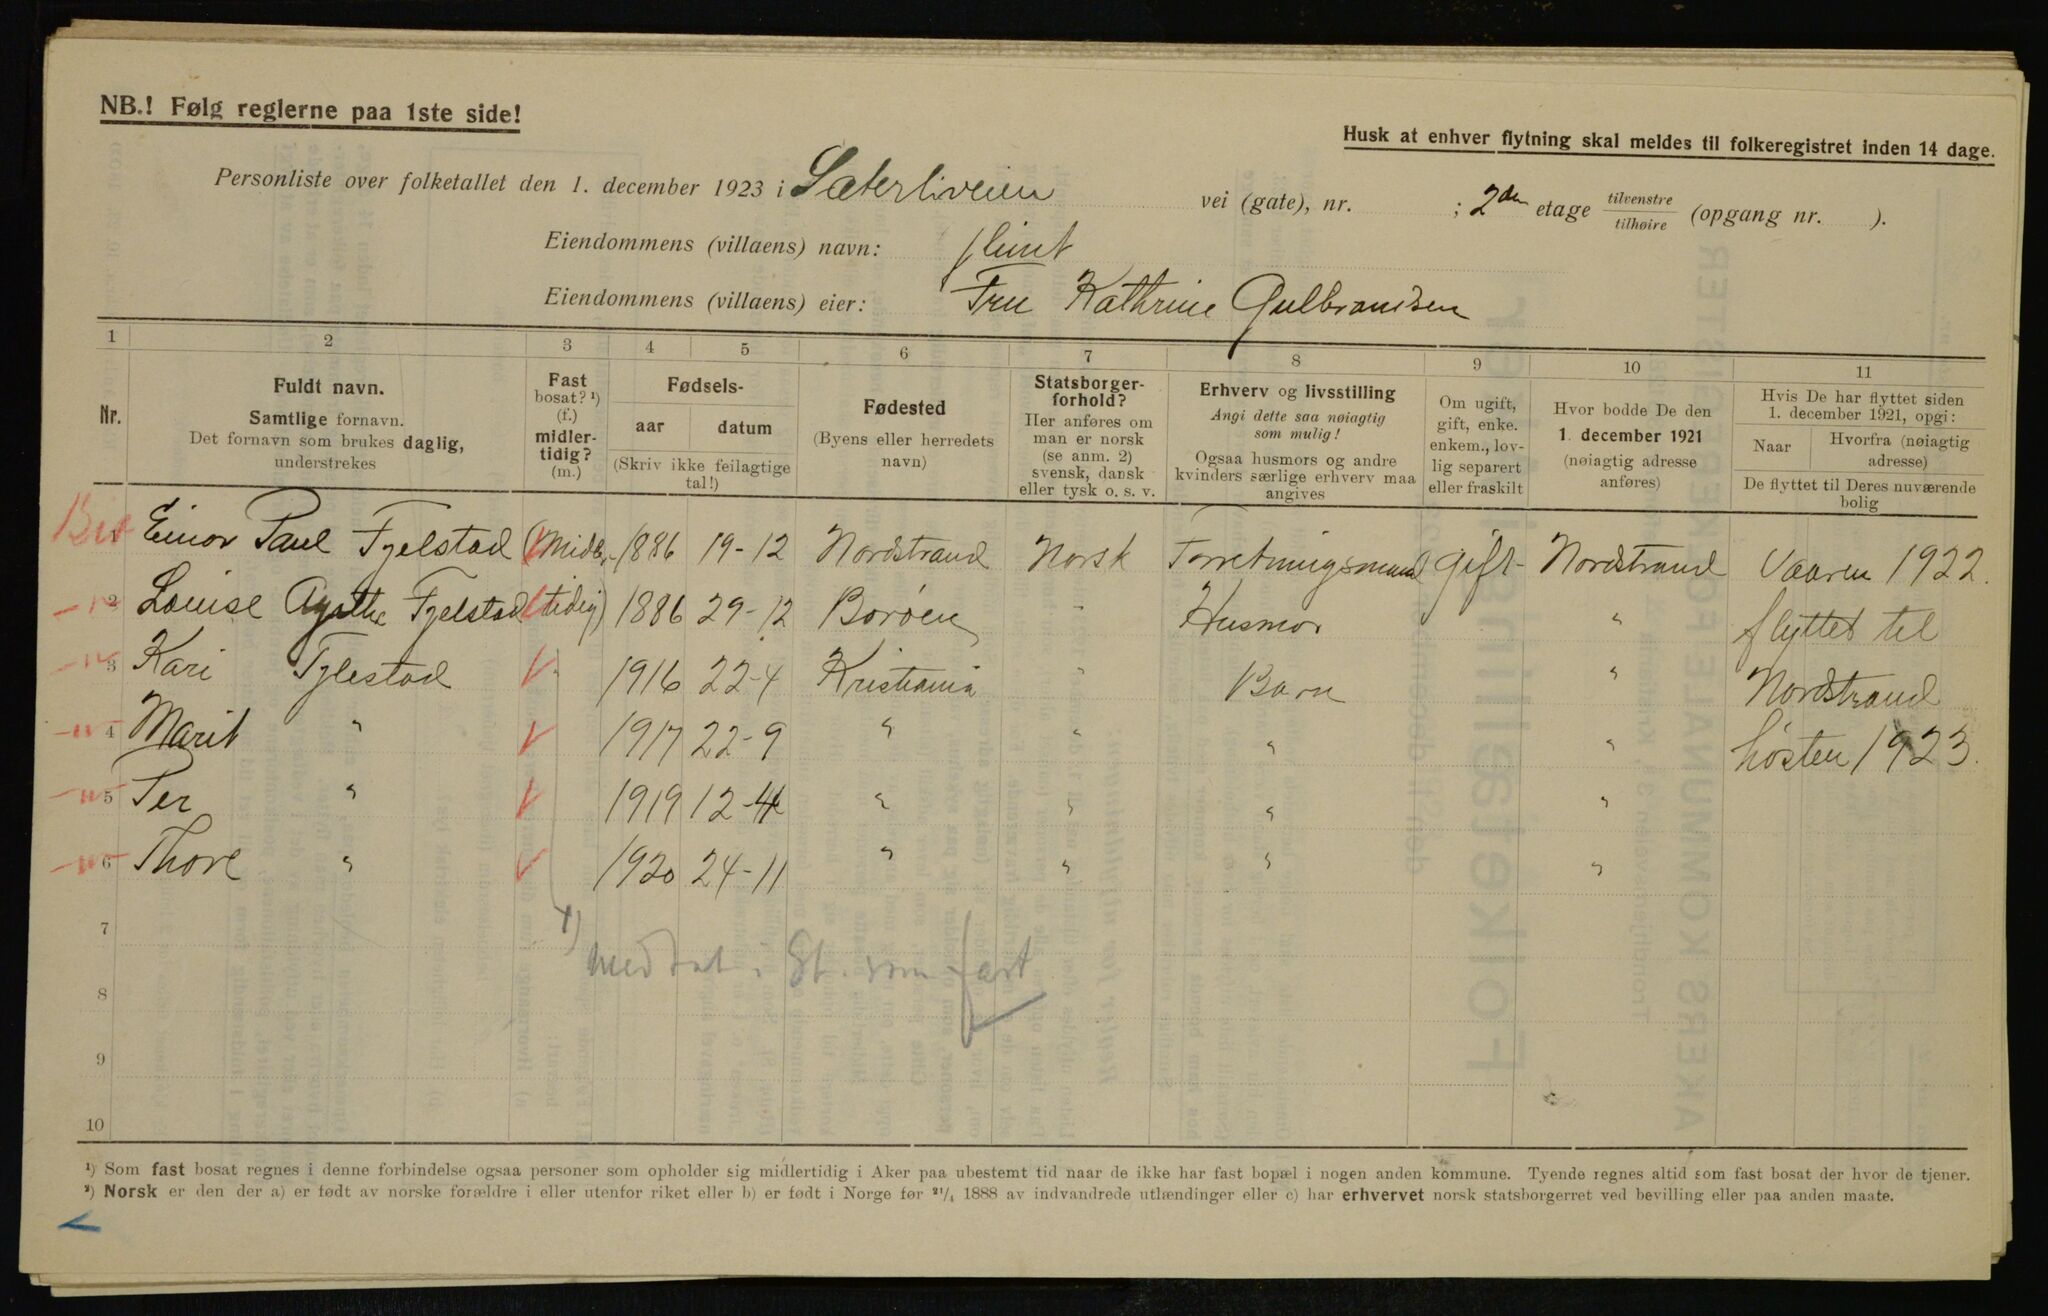 NB.! Følg reglerne paa 1ste side!
Husk at enhver flytning skal meldes til folkeregistret inden 14 dage.
Personliste over folketallet den 1. december 1923 i Sæterliveien vei (gate), nr. ; 2den etage tilvenstre tilhøire (opgang nr. ).
Eiendommens (villaens) navn: flint
Eiendommens (villaens) eier: Fru Kathrine Gulbrandsen
1 2 3 4 5 6 7 8 9 10 11
Nr.
Fuldt navn.
Samtlige fornavn.
Det fornavn som brukes daglig,
understrekes
Fast
bosat? ¹)
(f.)
midler-
tidig?
(m.)
Fødsels-
aar datum
(Skriv ikke feilagtige
tal!)
Fødested
(Byens eller herredets
navn)
Statsborger-
forhold?
Her anføres om
man er norsk
(se anm. 2)
svensk, dansk
eller tysk o. s. v.
Erhverv og livsstilling
Angi dette saa nøiagtig
som mulig!
Ogsaa husmors og andre
kvinders særlige erhverv maa
angives
Om ugift,
gift, enke.
enkem., lov-
lig separert
eller fraskilt
Hvor bodde De den
1. december 1921
(nøiagtig adresse
anføres)
Hvis De har flyttet siden
1. december 1921, opgi:
Naar Hvorfra (nøiagtig
adresse)
De flyttet til Deres nuværende
bolig
1 Einar Paul Fjelstad (Midler- 1886 19-12 Nordstrand Norsk Forretningsmand gift Nordstrand Vaaren 1922.
2 Louise Agathe Fjelstad tidig) 1886 29-12 Borøen " Husmor " flyttet til
3 Kari Fjelstad 1916 22-4 Kristiania " Barn " Nordstrand
4 Marit " 1917 22-9 " " " " høsten 1923.
5 Per " 1919 12-4 " " " "
6 Thore " 1920 24-11 " " " "
7
1) medtat i St. som fast
8
9
10
¹) Som fast bosat regnes i denne forbindelse ogsaa personer som opholder sig midlertidig i Aker paa ubestemt tid naar de ikke har fast bopæl i nogen anden kommune. Tyende regnes altid som fast bosat der hvor de tjener.
²) Norsk er den der a) er født av norske forældre i eller utenfor riket eller b) er født i Norge før ²¹/₄ 1888 av indvandrede utlændinger eller c) har erhvervet norsk statsborgerret ved bevilling eller paa anden maate.